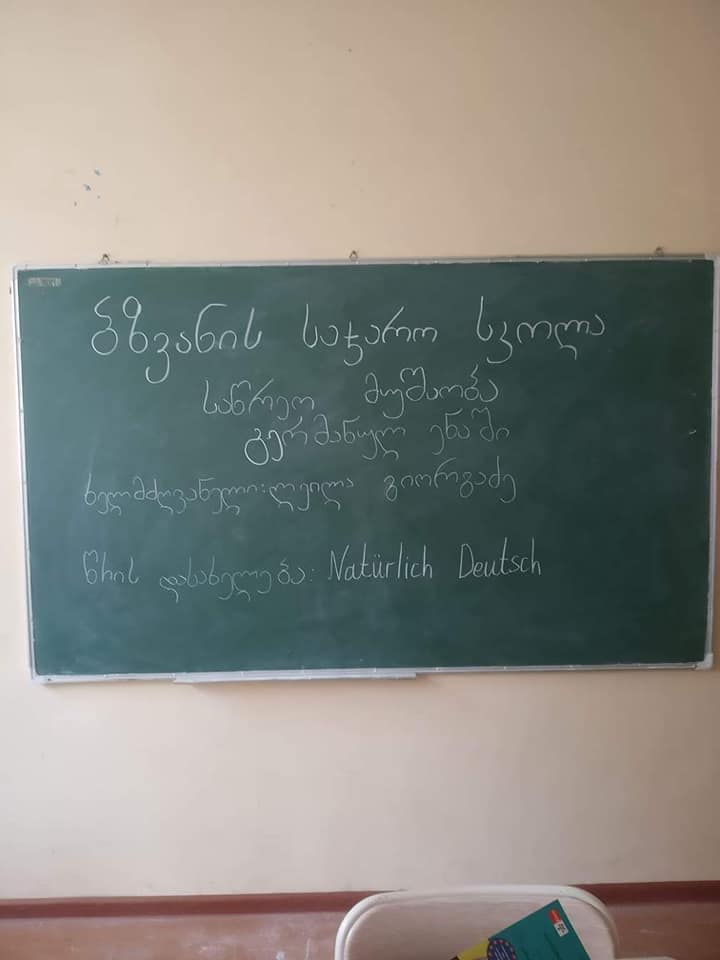 ბზვანის საჯარო სკოლა
საწრეო მუშაობა
გერმანულ ენაში
ხელმძღვანელი: ლეილა გიორგაძე
წრის დასახელება: Natürlich Deutsch